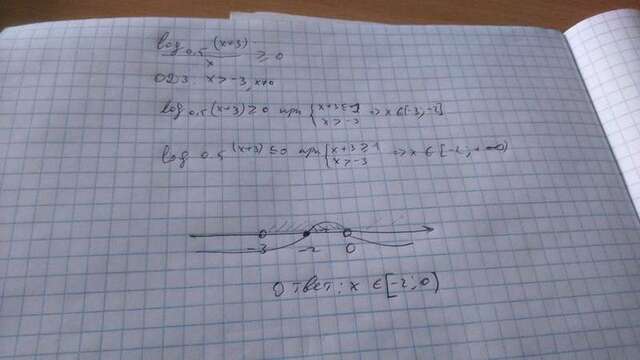 log₀,₅(x+3) / x ≥ 0
ОДЗ: x > -3, x≠0
log₀,₅(x+3) ≥ 0 при { x+3 ≤ 1 x > -3 => x ∈ (-3; -2]
log₀,₅(x+3) ≤ 0 при { x+3 ≥ 1 x > -3 => x ∈ [-2; +∞)
-3 -2 0
Ответ: x ∈ [-2; 0)